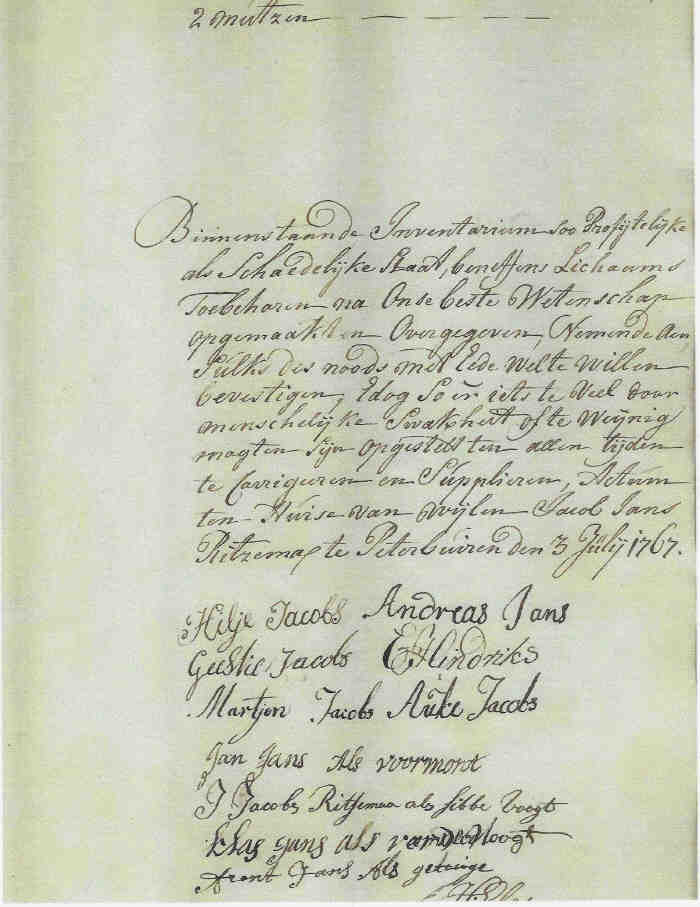 2 mutzen — — — —
Binnenstaande Inventarium soo Profijtelijke
als Schaedelijke Staat, beneffens Lichaams
Toebehoren na Onse beste Wetenschap
opgemaakt en Overgegeven, Nemende Aen
Sulks des noods met Eede wel te willen
bevestigen, Edog so er iets te Veel door
menschelijke Swakheit ofte Weijnig
mogten sijn opgestelt ten allen tijden
te Corrigeren en Supplieren, Actum
ten Huise van wijlen Jacob Jans
Ritzema te Peterbuiren den 3 Julij 1767.
Hilje Jacobs Andreas Jans
Geestie Jacobs E Hindriks
Martjen Jacobs Auke Jacobs
Jan Jans als voormont
J Jacobs Ritsema als sibbe Voogt
Klas Jans als vremde Voogt
Arent Jans Als getuige